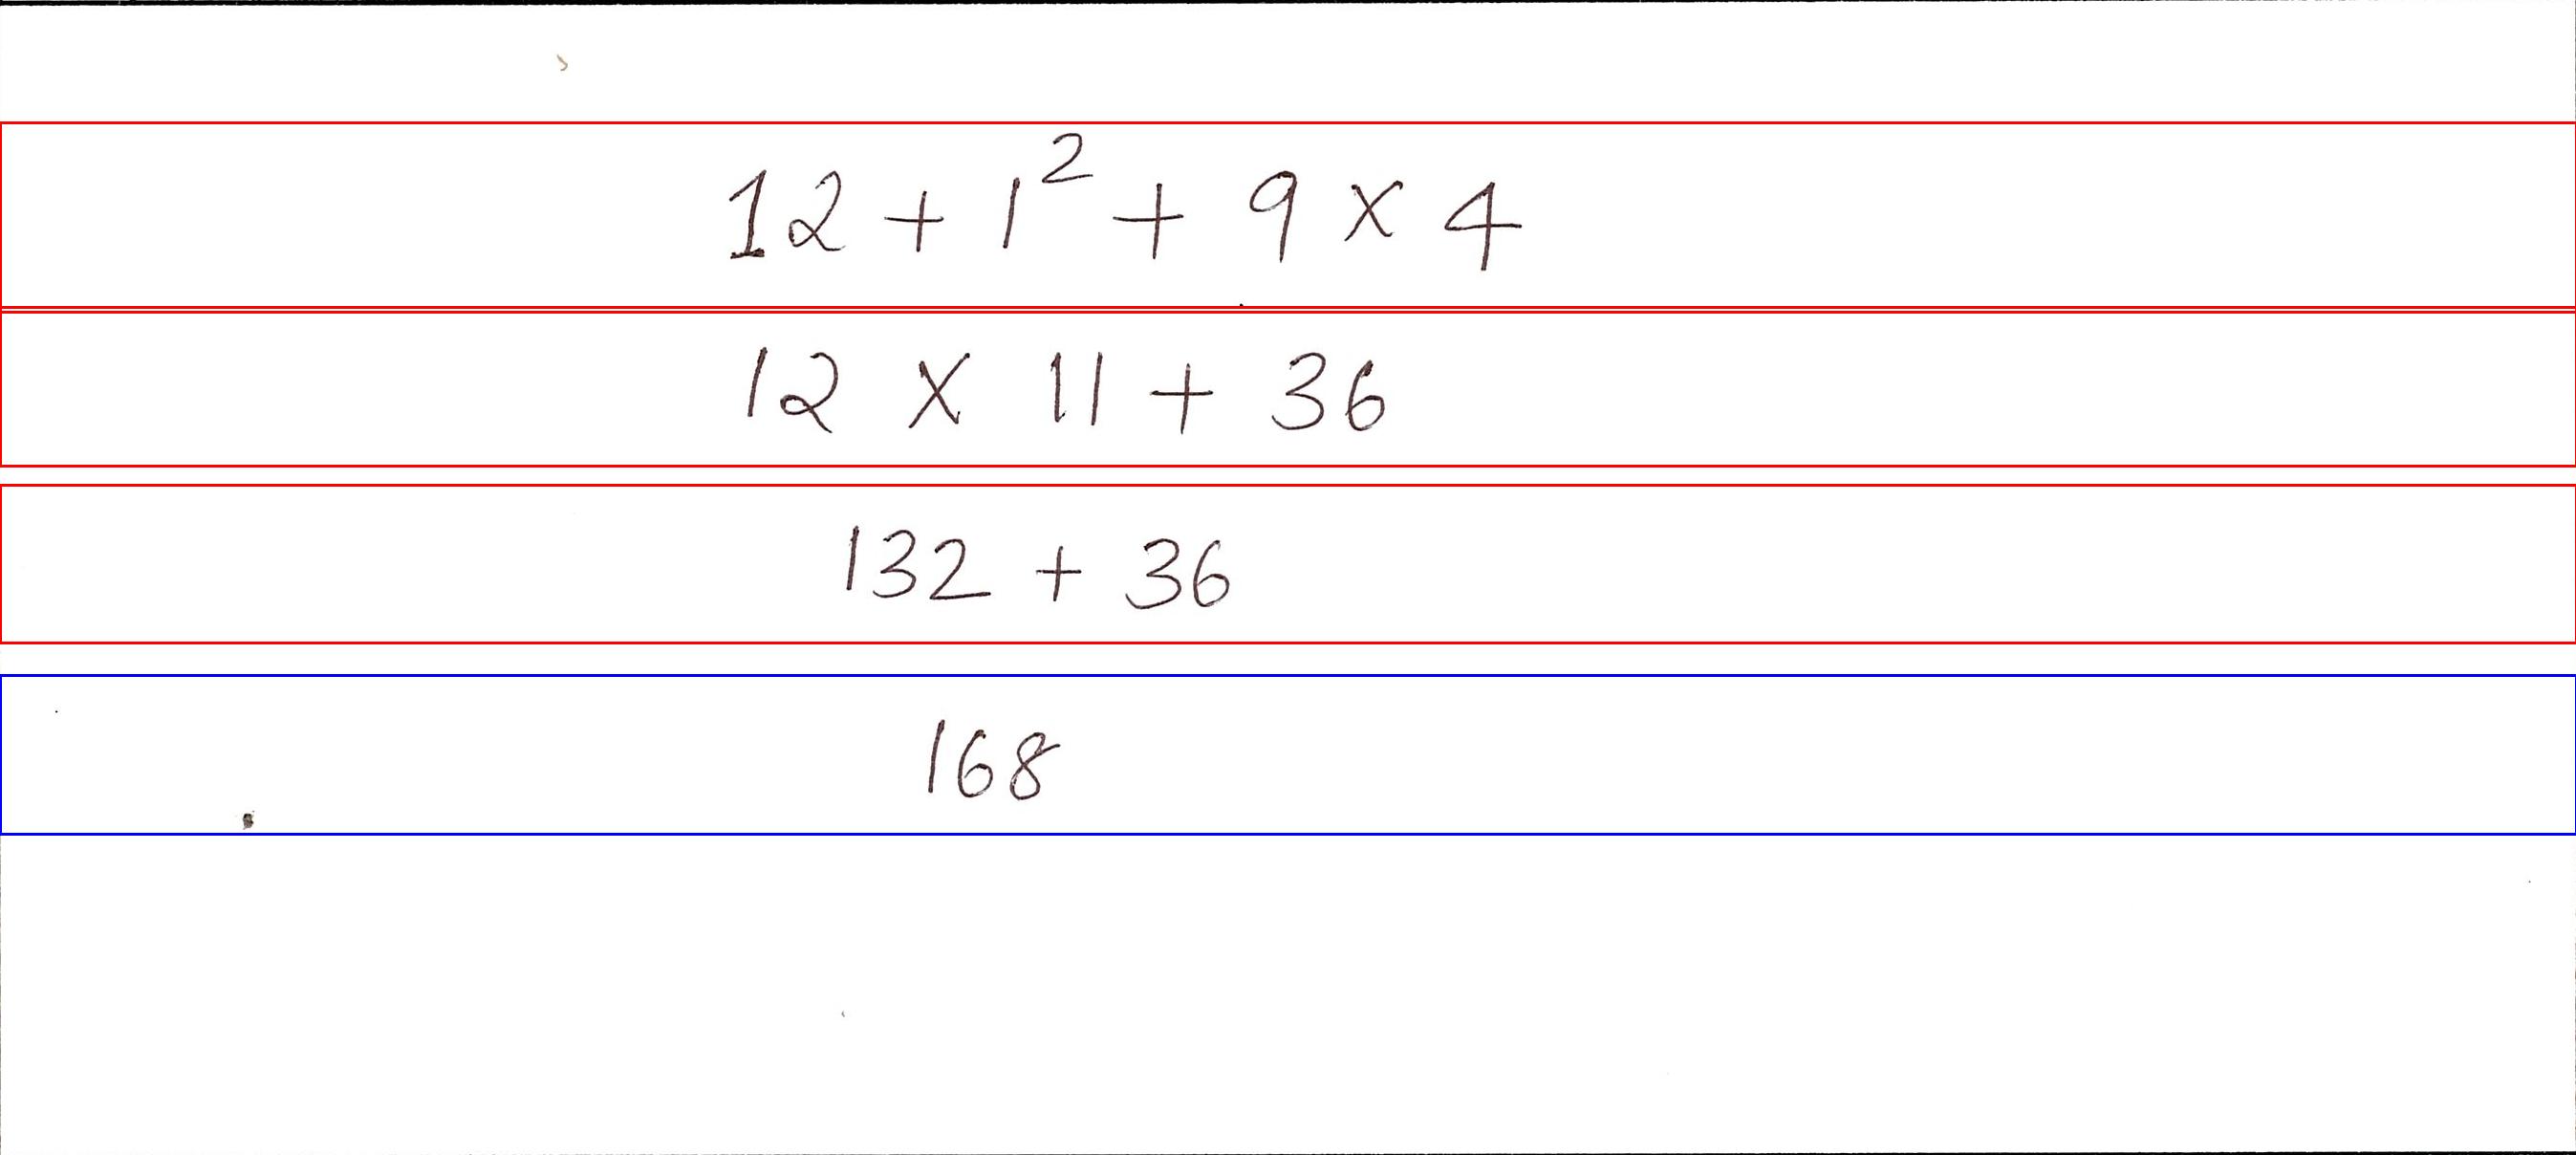 12 + 1² + 9 × 4
12 × 11 + 36
132 + 36
168